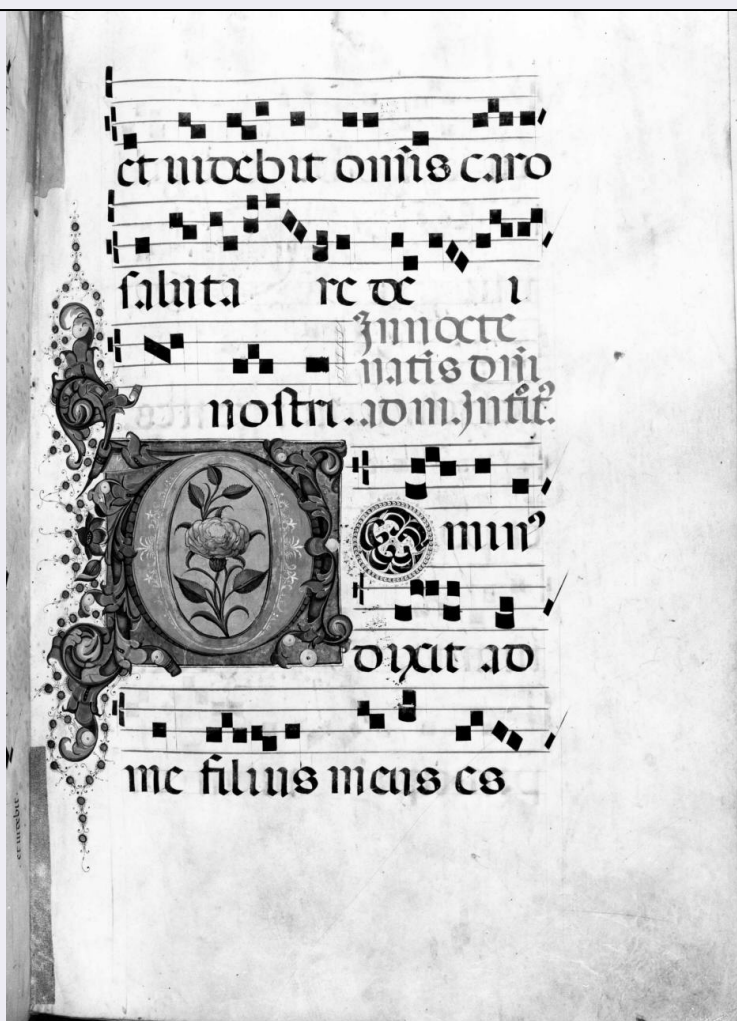 et uidebit om̅is caro
saluta re de i
In nocte
natis dn̅i
nostri. ad m. Intrt̅.
D O minꝰ
dixit ad
me filius meus es
et uidebit.